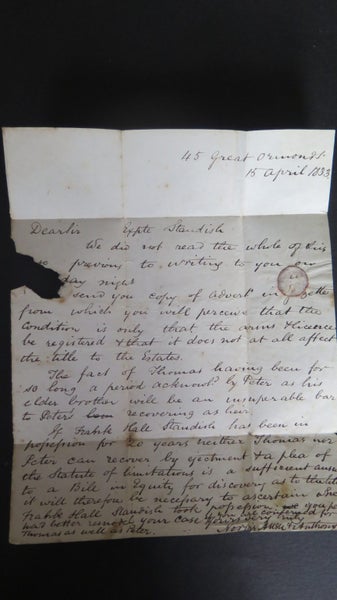 45 Great Ormond St
15 April 1833
Dear Sir Expte Standish
We did not read the whole of this
previous to writing to you on
day night
send you copy of advert in
from which you will perceive that the
Condition is only that the arms & licence
be registered & that it does not at all affect
the title to the Estates.
The fact of Thomas having been for
so long a period acknowd by Peter as his
elder brother will be an insuperable bar
to Peter's recovering as heir.
If Frank Hall Standish has been in
possession for 20 years neither Thomas nor
Peter can recover by ejectment & a plea of
the Statute of limitations is a sufficient answ
to a Bill in Equity for discovery as to the title
it will therefore be necessary to ascertain when
Frank Hall Standish took possession you
had better remodel your case
Thomas as well as Peter.